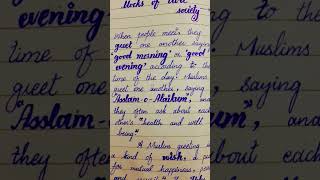 of
society
When people meet, they
greet one another saying
"good morning" or "good
evening" according to the
time of the day. Muslims
greet one another, saying
"Asslam-o-Alaikum", and
they often ask about each
other's "health and well
being".
A Muslim greeting
a kind of wish, a
for mutual happiness,